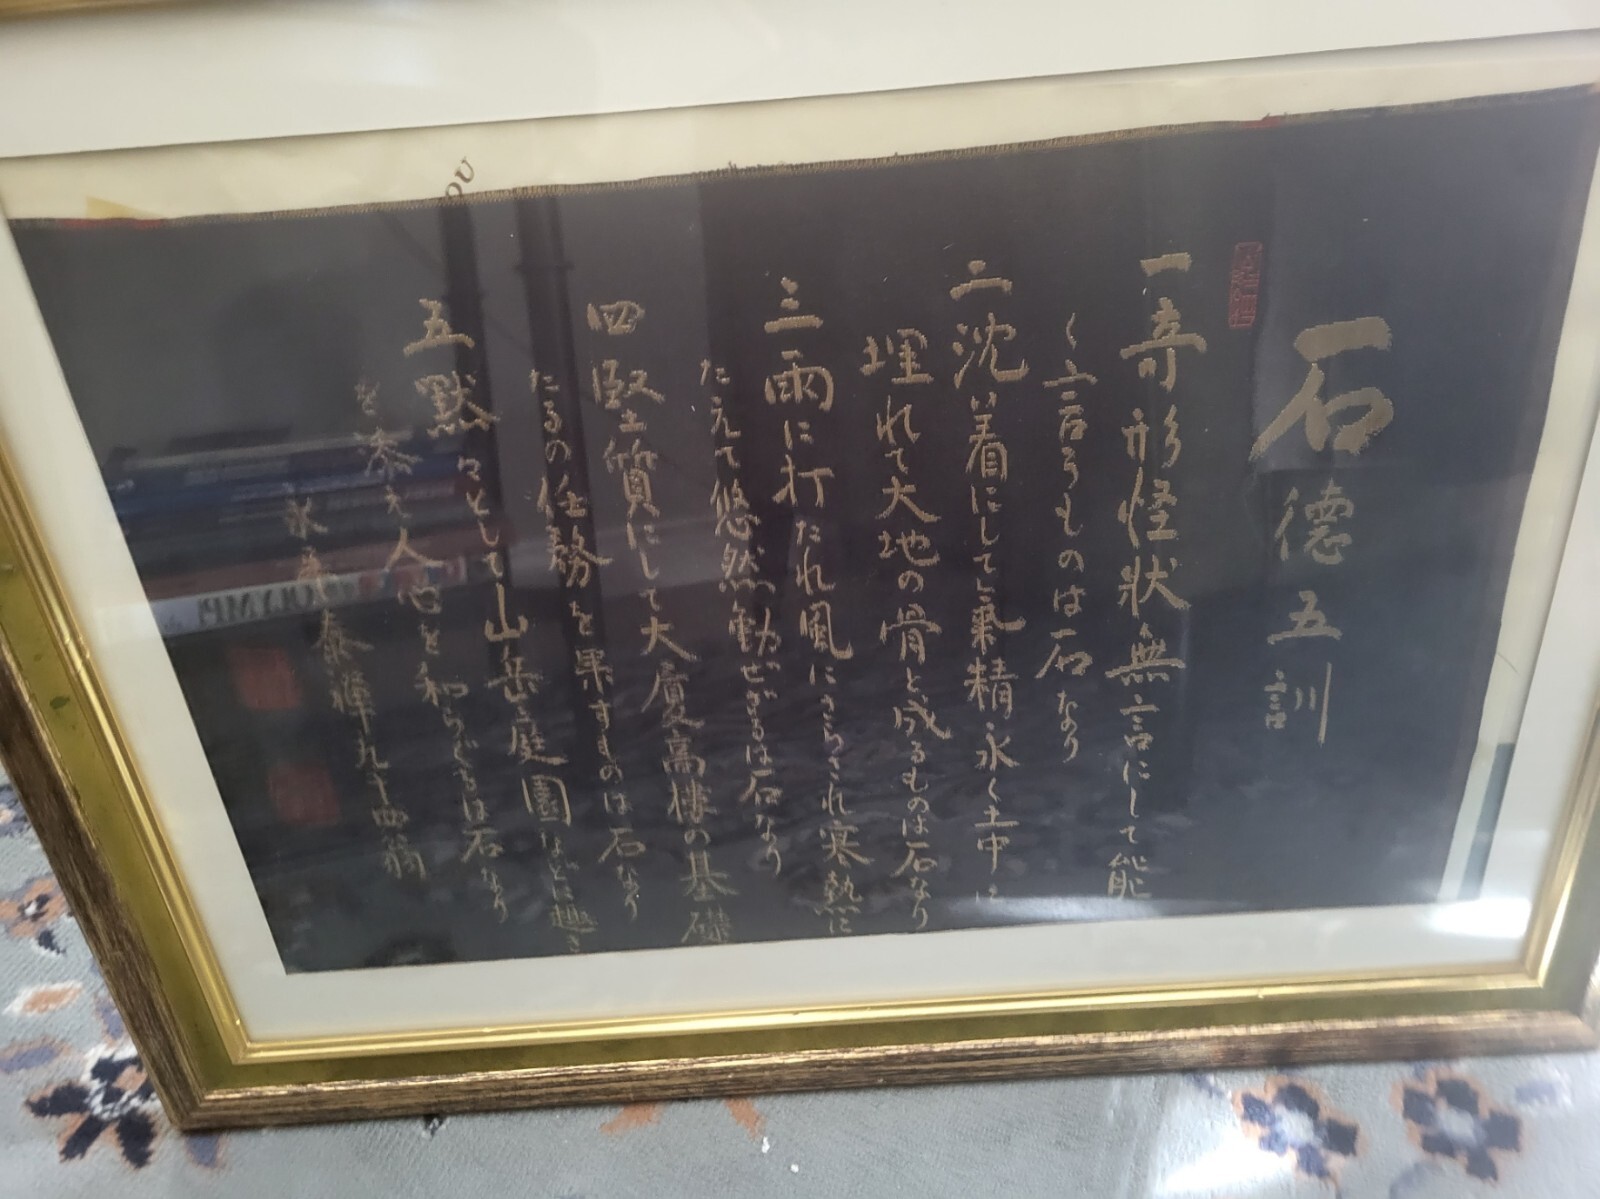 石德五訓
一奇形怪狀無言にして能
く言うものは石なり
二沈着にして氣精永く土中に
埋れて大地の骨と成るものは石なり
三雨に打たれ風にさらされ寒熱に
たえて悠然動ぜざるは石なり
四堅質にして大廈高樓の基礎
たるの任務を果すものは石なり
五黙々として山岳庭園などに趣き
を添え人心を和らぐるは石なり
泰輝九十四翁
OU